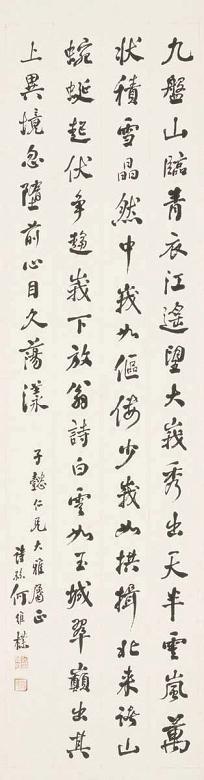 九盤山臨青衣江遙望大峩秀出天半雲嵐萬
狀積雪晶然中峩如傴僂少峩如拱揖北来諸山
蜿蜒起伏爭趨峩下放翁詩白雲如玉城翠巔出其
上異境忽墮前心目久蕩漾
子懿仁兄大雅屬正
詩孫何維樸